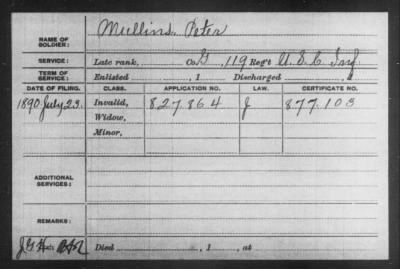 NAME OF SOLDIER: Mullins, Peter
SERVICE: Late rank, Co. G, 119 Reg't U. S. C. Inf
TERM OF SERVICE: Enlisted , 1 Discharged , 1
DATE OF FILING. CLASS. APPLICATION NO. LAW. CERTIFICATE NO.
1890 July 23. Invalid, 827864 J 877.103
Widow,
Minor,
ADDITIONAL SERVICES:
REMARKS:
Died , 1 , at